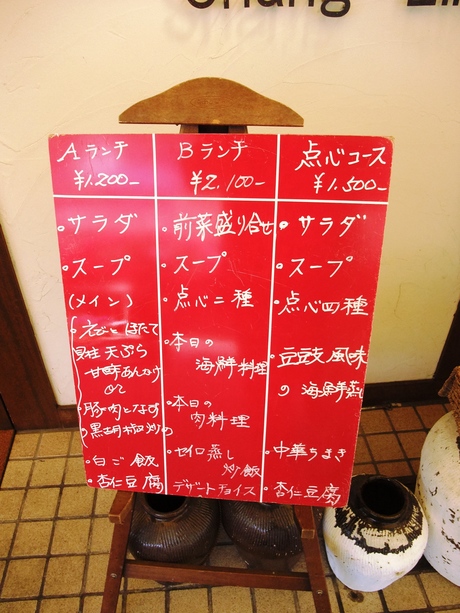 Aランチ
¥1.200-
・サラダ
・スープ
(メイン)
・えびとほたて
天ぷら
甘酢あんかけ
or
・豚肉となす
黒胡椒炒め
・白ご飯
・杏仁豆腐
Bランチ
¥2.100-
・前菜盛り合せ
・スープ
・点心二種
・本日の
海鮮料理
・本日の
肉料理
・セイロ蒸し
炒飯
・デザートチョイス
点心コース
¥1.500-
・サラダ
・スープ
・点心四種
・豆豉風味
の海鮮蒸し
・中華ちまき
・杏仁豆腐